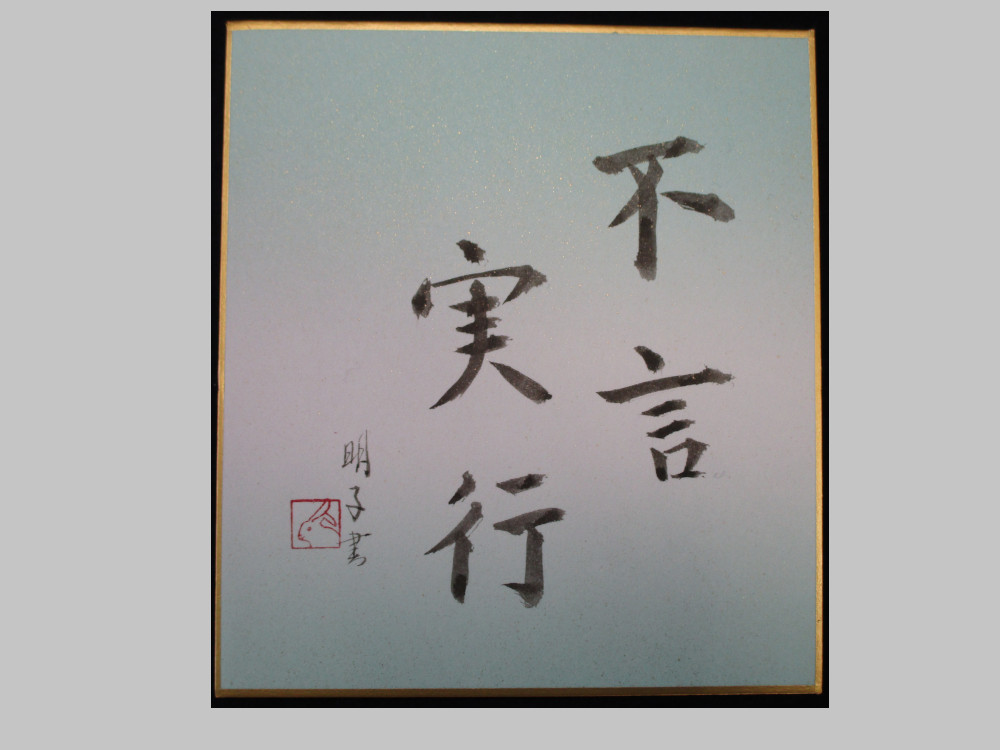 不言
実行
明子書